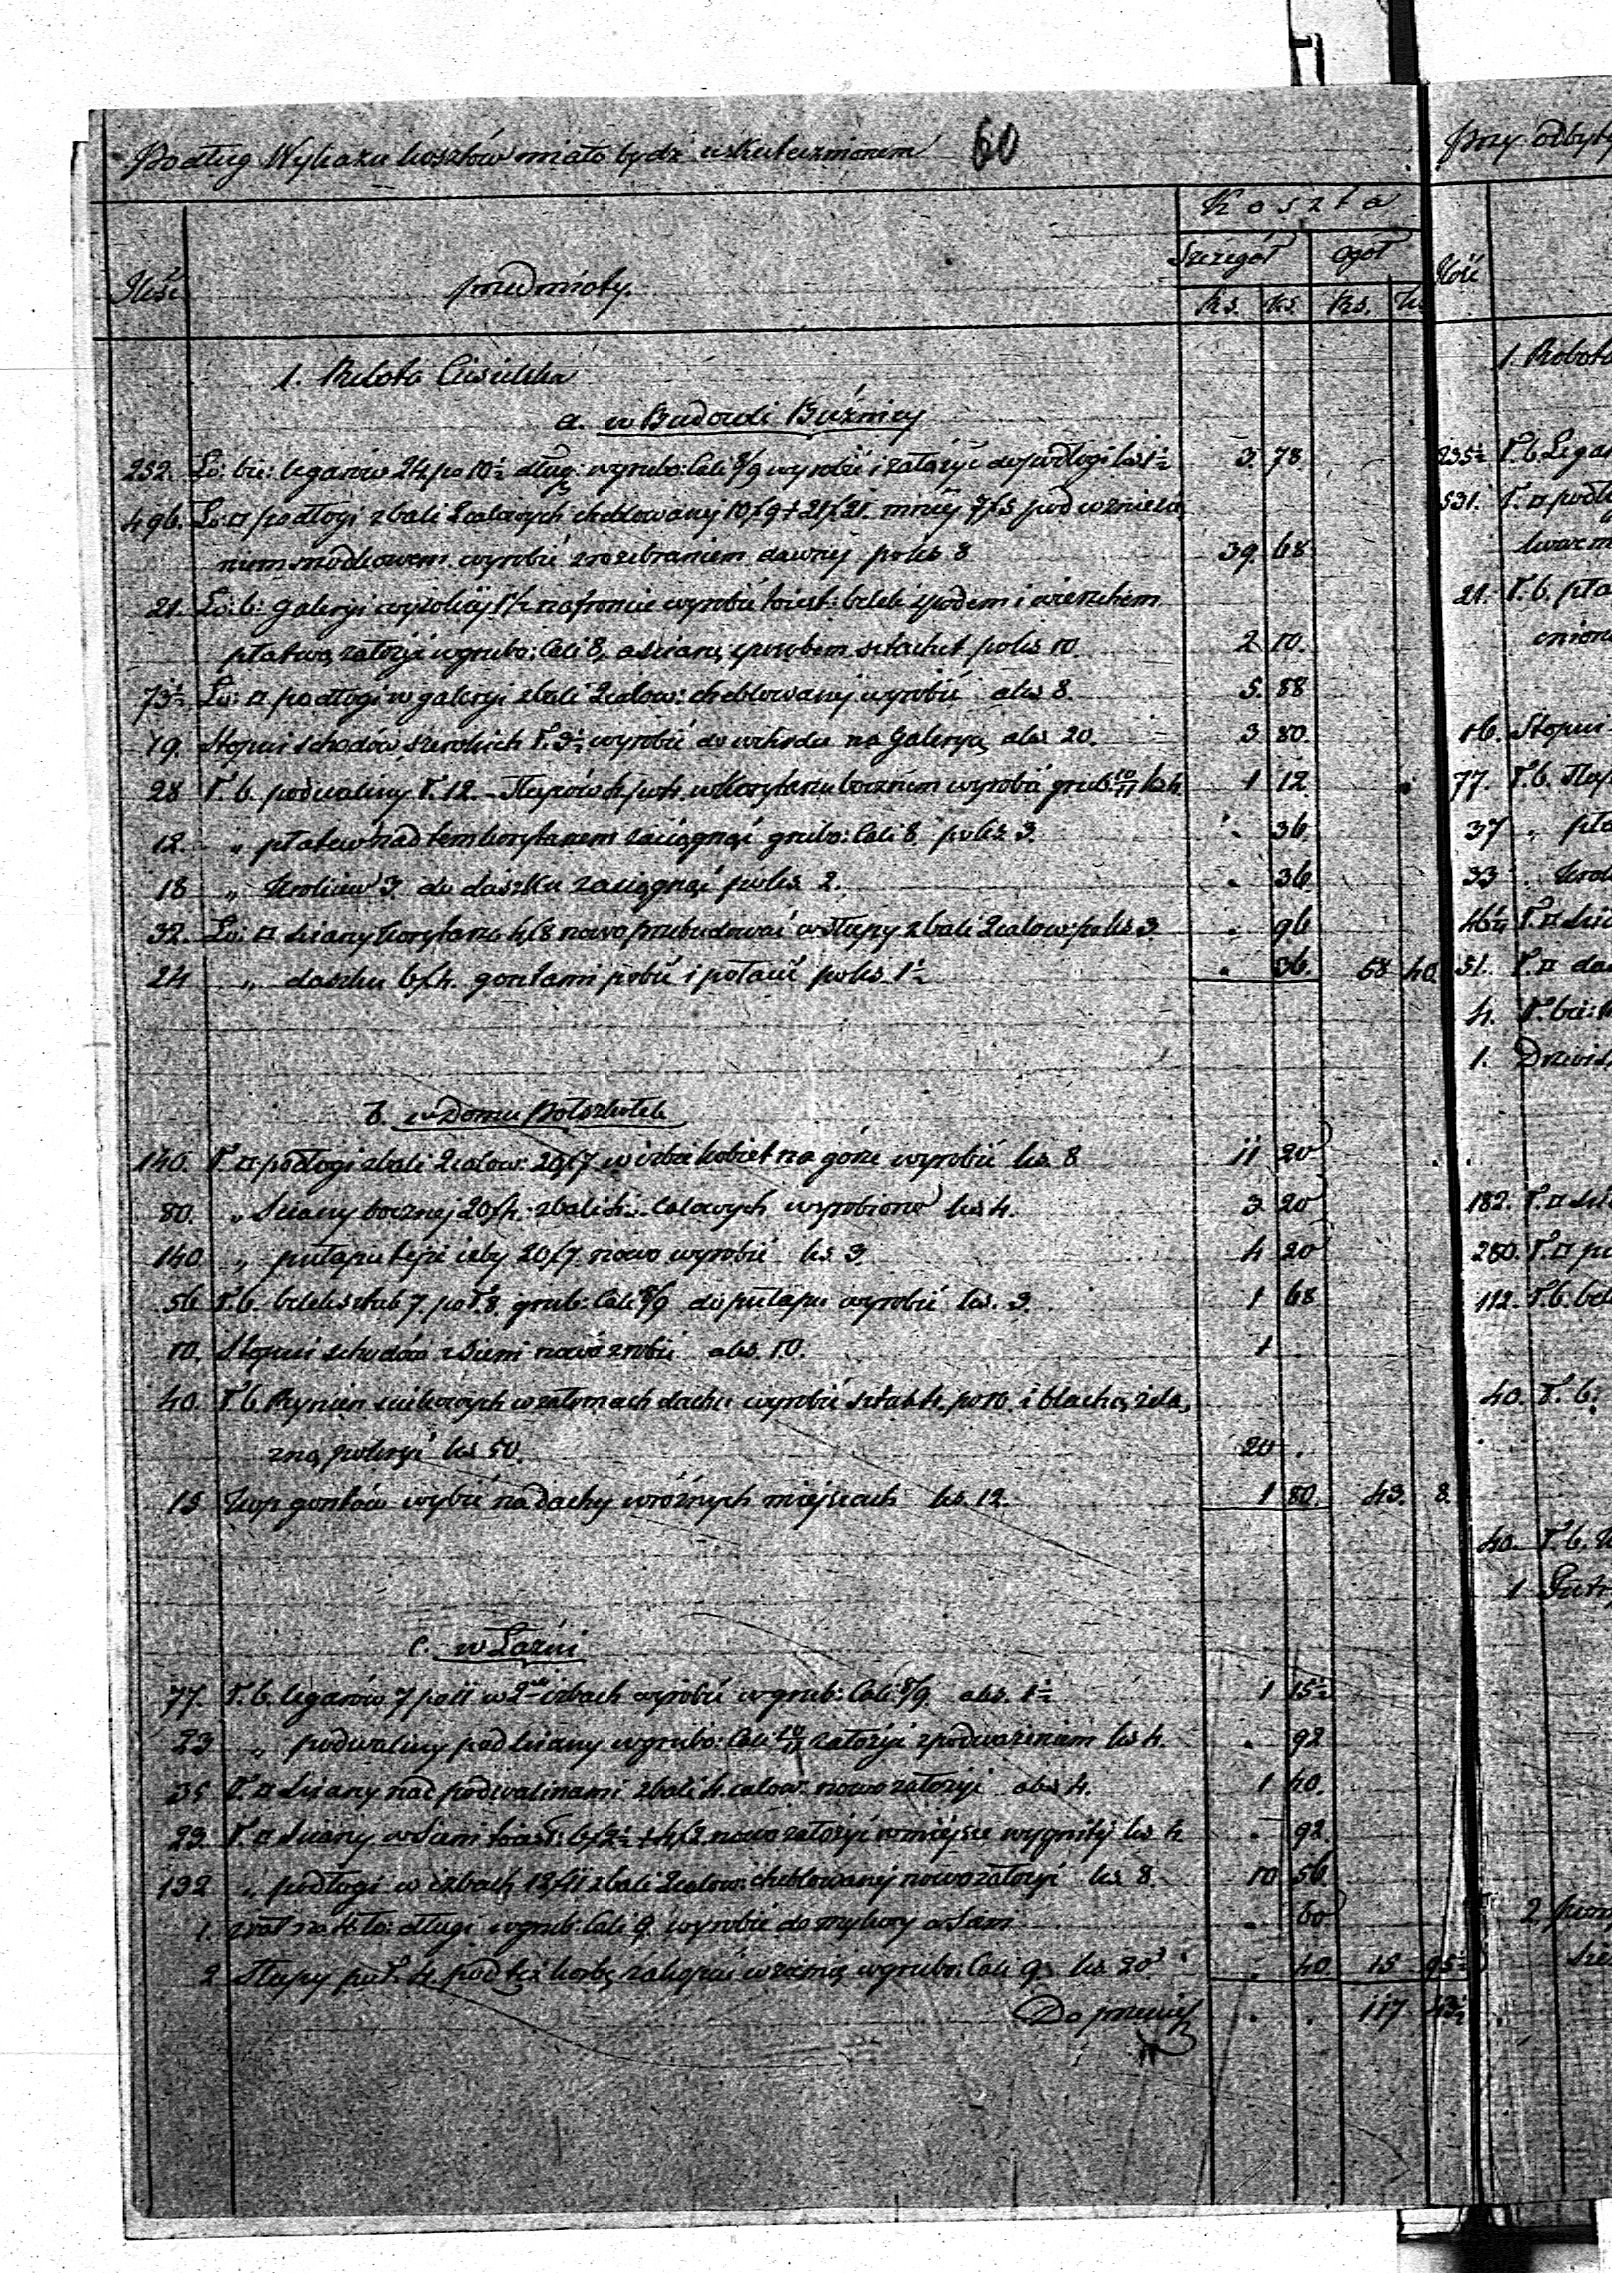 Podług Wykazu kosztów miało bydź uskutecznionem 60
Koszta
Szczegół ogół
Ilość przedmioty.
Rs. ks. Rs. ks.
1. Robota Ciesielska
a. w Budowli Bużnicy
252. Ło: bie: legarów 24 po 10½ dług: w grubo: Cali 8/9 wyrobić i założyć do podłogi ks 1½ 3. 78.
496. Ło: □ podłogi z bali 2 calowych cheblowanej 10/9 + 21/21. mniej 7/5 pod wzniesie,
niem środkowem wyrobić z rozebraniem dawnej po ks 8 39. 68.
21. Ło: b: Galeryi wysokiej na froncie wyrobić to iest: belek spodem i wierzchem
płatwą założyć w grubo: Cali 8, a ścianę sposobem sztachet po ks 10. 2 10.
73½ Ło: □ podłogi w galeryi z bali 2 calow: cheblowanej wyrobić a ks 8. 5. 88
19. Stopni schodów szerokich Ł. 3½ wyrobić do wchodu na Galeryą a ks 20. 3 80.
28 Ł. b. podwaliny Ł. 12. – Słupów 4 po 4. w Korytarzu bocznem wyrobić grub: 10/11 ks 4 1 12
12. „ płatew nad tem korytarzem zaciągnąć grubo: Cali 8. po ks 3. „ 36.
18 „ Krokiew 3. do daszku zaciągnąć po ks 2. „ 36.
32. Ło: □ ściany korytarza 4/8 nowo przebudować w słupy z bali 2 calow: po ks 3. „ 96
24 „ daszku 6/4. gontami pobić i połacić po ks 1½ „ 36. 58 40.
b. w Domu
140. Ł □ podłogi z bali 2 calow: 20/7. w izbie kobiet na górze wyrobić ks. 8 11 20
80. „ Ściany bocznej 20/4. z bali 4. calowych wyrobione ks 4. 3 20
140 „ pułapu tejże izby 20/7. nowo wyrobić ks 3. 4 20
56 Ł. b. belek sztuk 7. po Ł. 8. grub: Cali 8/9 do pułapu wyrobić ks. 3. 1 68
10. Stopni schodów z Sieni nowo zrobić a ks. 10. 1
40. Ł b. Rynien ściekowych w załomach dachu wyrobić sztuk 4. po 10. i blachą żela,
zną pokryć ks 50. 20 .
15 Kop gontów wybić na dachy w różnych miejscach ks. 12. 1 80. 43. 8.
c. w Łaźni
77. Ł. b. legarów 7 po 11 w 2ch izbach wyrobić w grub: Cali 8/9 a ks. 1½ 1 15½
23 „ podwaliny pod ściany w grubo: Cali 10/11 założyć z podważeniem ks 4. „ 92
35 Ł. □ Ściany nad podwalinami z bali 4. calow: nowo założyć a ks 4. 1 40.
23. Ł. □ Ściany w Sieni to iest: 6/2½ + 4/2 nowo założyć w miejsce wygniłej ks 4. „ 92.
132 „ podłogi w izbach 12/11 z bali 2 calow: cheblowanej nowo założyć ks 8. 10 56
1. długi w grub: Cali 9. wyrobić do w Sieni „ 60
2 Słupy po Ł. 4. pod też korbę zakopać w ziemię w grubo: Cali 9. ks 20. „ 40. 15 95½
Do przeniesienia . . 117 43½
przy odbyty
Ilość
1. Robota
235½ Ł. b. Legar
531. Ł. □ podł
21. Ł. b. pła
16. Stopni
77. Ł. b. Słup
37 „ pła
33 „ Krok
46¼ Ł. □ ści
51. Ł. □ da
4. Ł. bie:
1. Drzwi
182. Ł. □
280. Ł. □ pu
112. Ł. b. bel
40. Ł. b.
40. Ł. b.
1
2